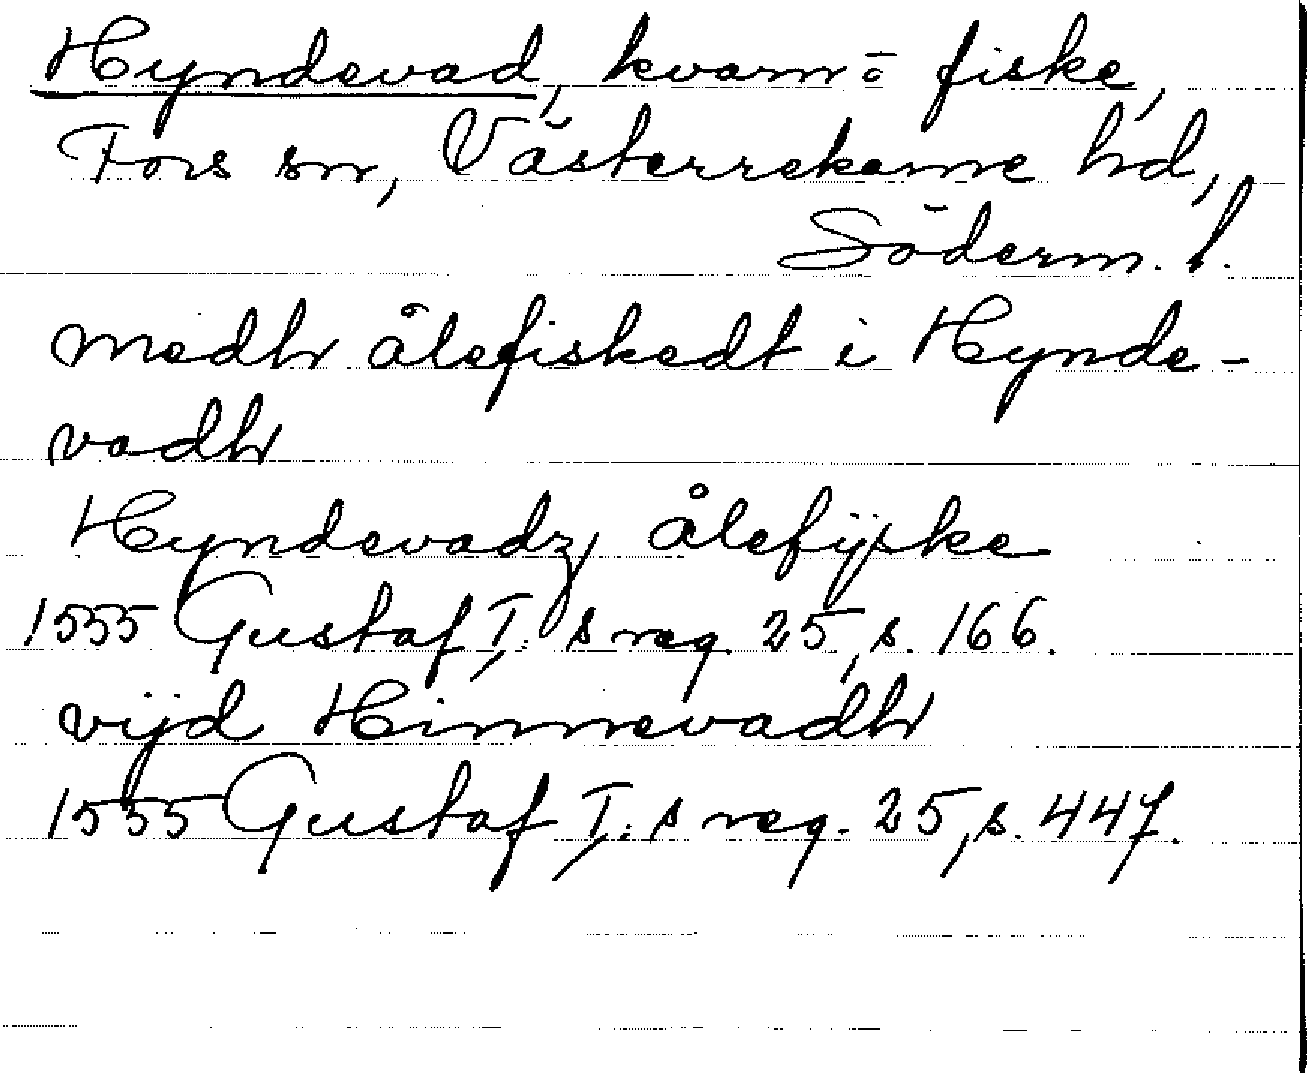 Hyndevad, kvarn o fiske,
Fors sn, Västerrekarne hd,
Söderm. l.
medh ålefiskedt i Hynde-
vadh
Hyndevadz ålefijske
1555 Gustaf I: s reg. 25, s. 166.
vijd Hinnevadh
1555 Gustaf I: s reg. 25, s. 447.